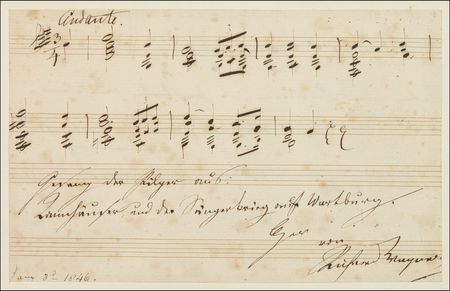 Andante.
3/4
Gesang der Pilger aus:
Tannhäuser und der Sängerkrieg auf Wartburg.
von
Richard Wagner
3 1846.